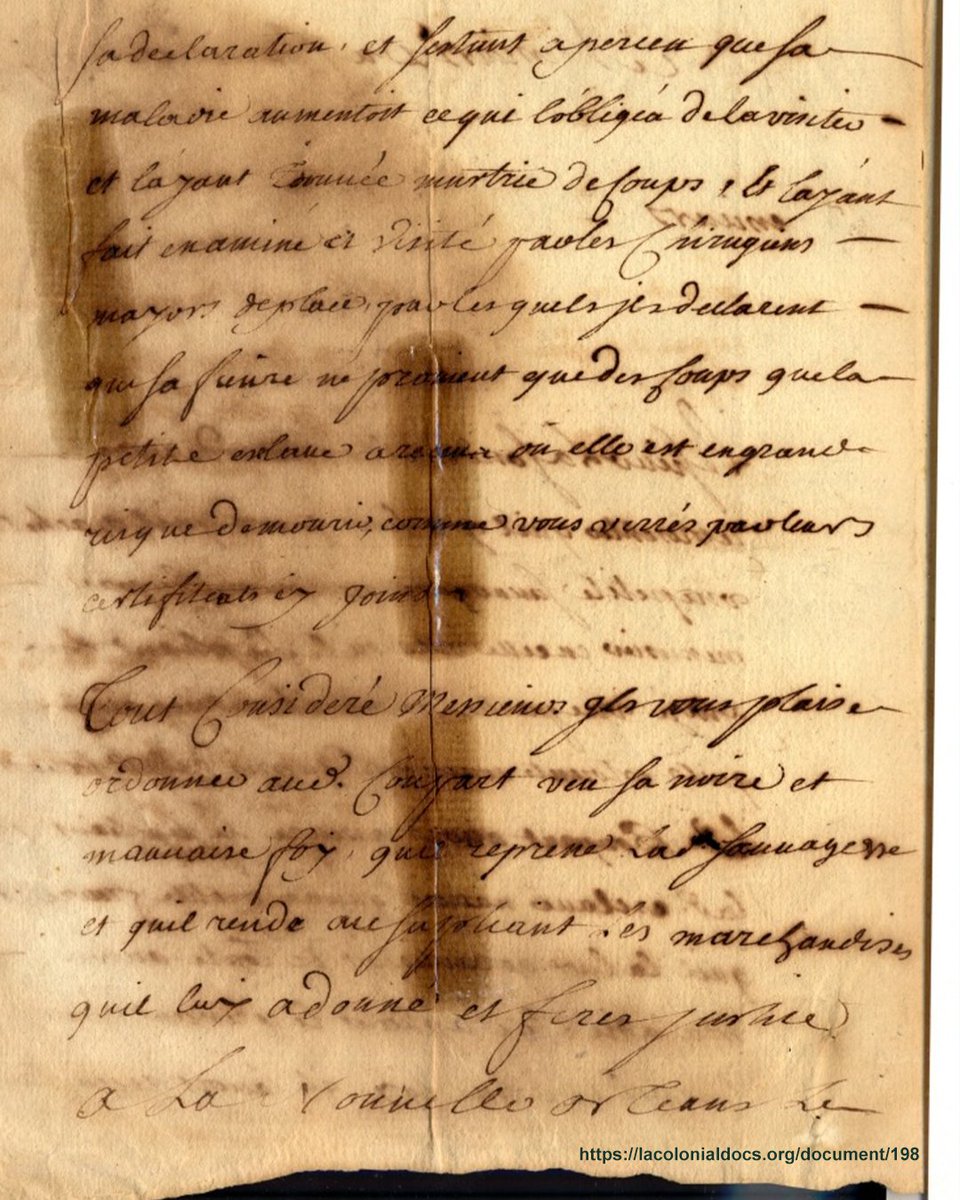 sa declaration, et sextant aperceu que sa
maladie aumentoit ce qui l'obligéa de la visiter
et l'ayant trouvée murtrie de coups, & l'ayant
fait examiné et visité par les Chirugiens
mayors de place, par les quels jls declarent
que sa fievre ne provient que des coups que la
petite esclave a receus ou elle est en grand
risque de mourir, comme vous verrés par leurs
certificats cy joints
Tout Consideré Messieurs jls vous plaise
ordonner aud. Coupart veu sa noire et
mauvaise foy, quil reprene lad. Sauvagesse
et quil rende au supliant les marchandises
quil luy a donné et feres justice
a La Nouvelle orleans Le
https://lacolonialdocs.org/document/198